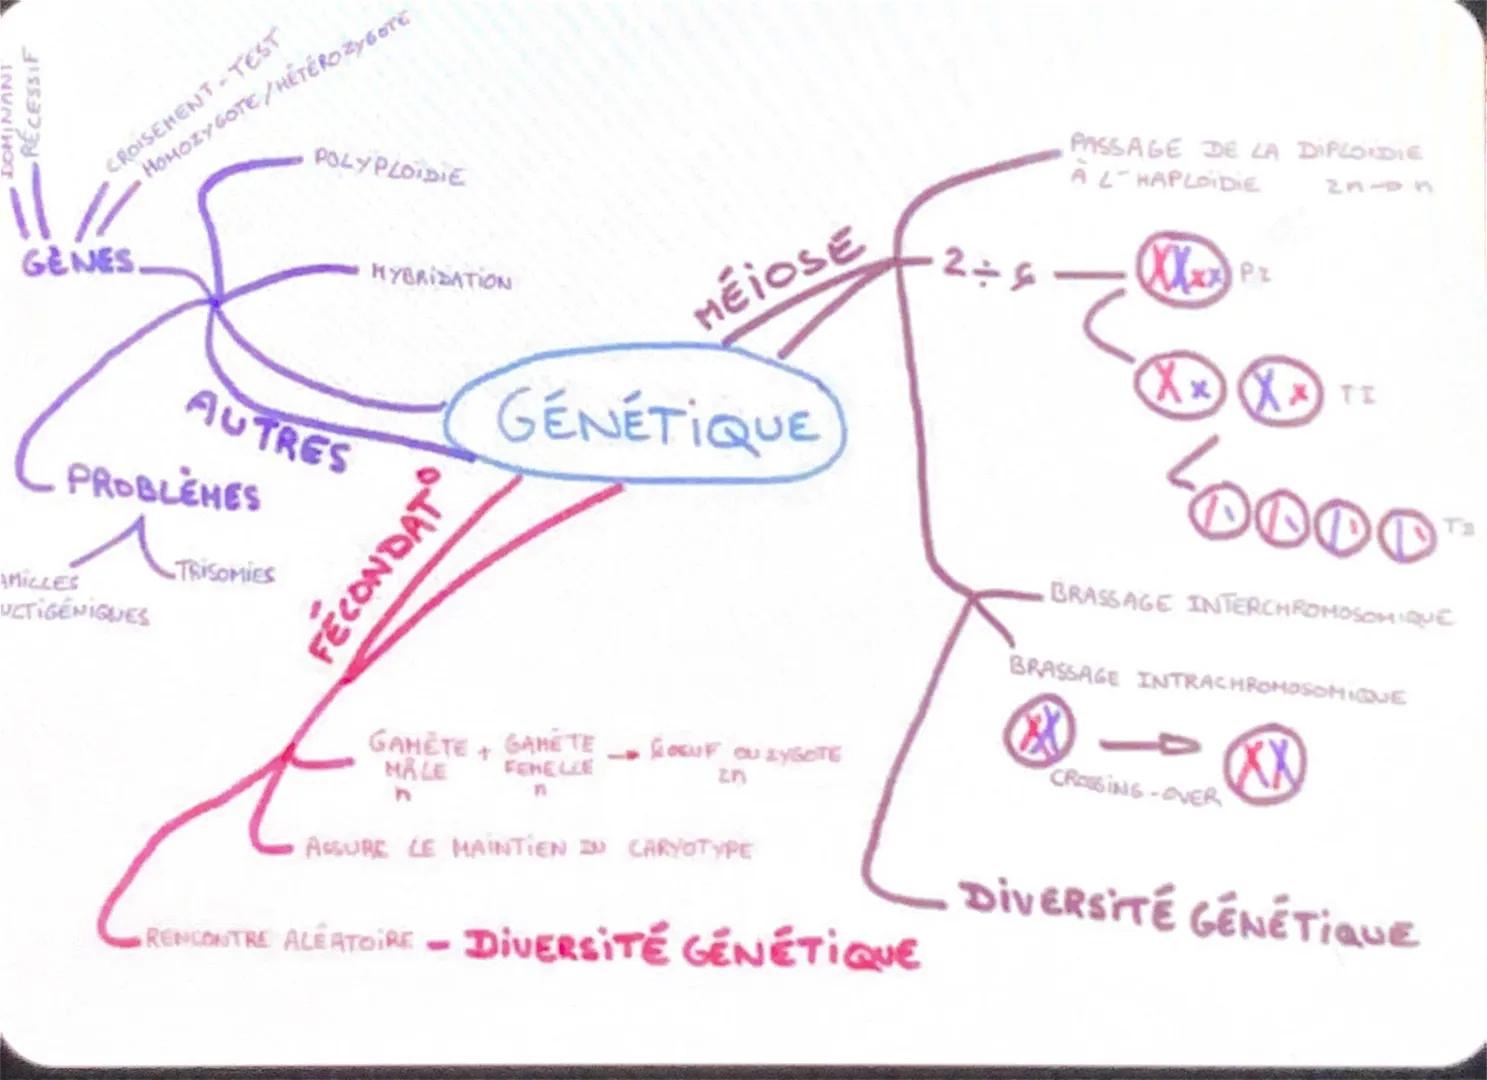 DOMINANT
RÉCESSIF
CROISEMENT-TEST
HOMOZYGOTE/HÉTÉROZYGOTE
GÈNES
POLYPLOÏDIE
HYBRIDATION
AUTRES
PROBLÈMES
TRISOMIES
GÉNÉTIQUE
MÉIOSE
PASSAGE DE LA DIPLOIDIE
À L'HAPLOÏDIE 2n→n
2 ÷
PI
TI
BRASSAGE INTERCHROMOSOMIQUE
BRASSAGE INTRACHROMOSOMIQUE
CROSSING-OVER
DIVERSITÉ GÉNÉTIQUE
FÉCONDAT°
GAMÈTE + GAMÈTE → OEUF OU ZYGOTE
MÂLE FEMELLE 2n
n n
ASSURE LE MAINTIEN DU CARYOTYPE
RENCONTRE ALÉATOIRE - DIVERSITÉ GÉNÉTIQUE